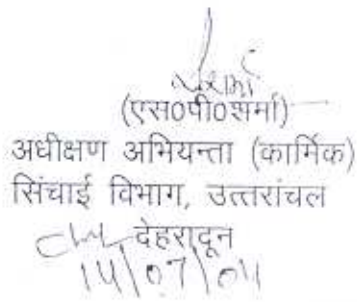 (एस0पी0शर्मा)
अधीक्षण अभियन्ता (कार्मिक)
सिंचाई विभाग, उत्तरांचल
देहरादून
14/07/04